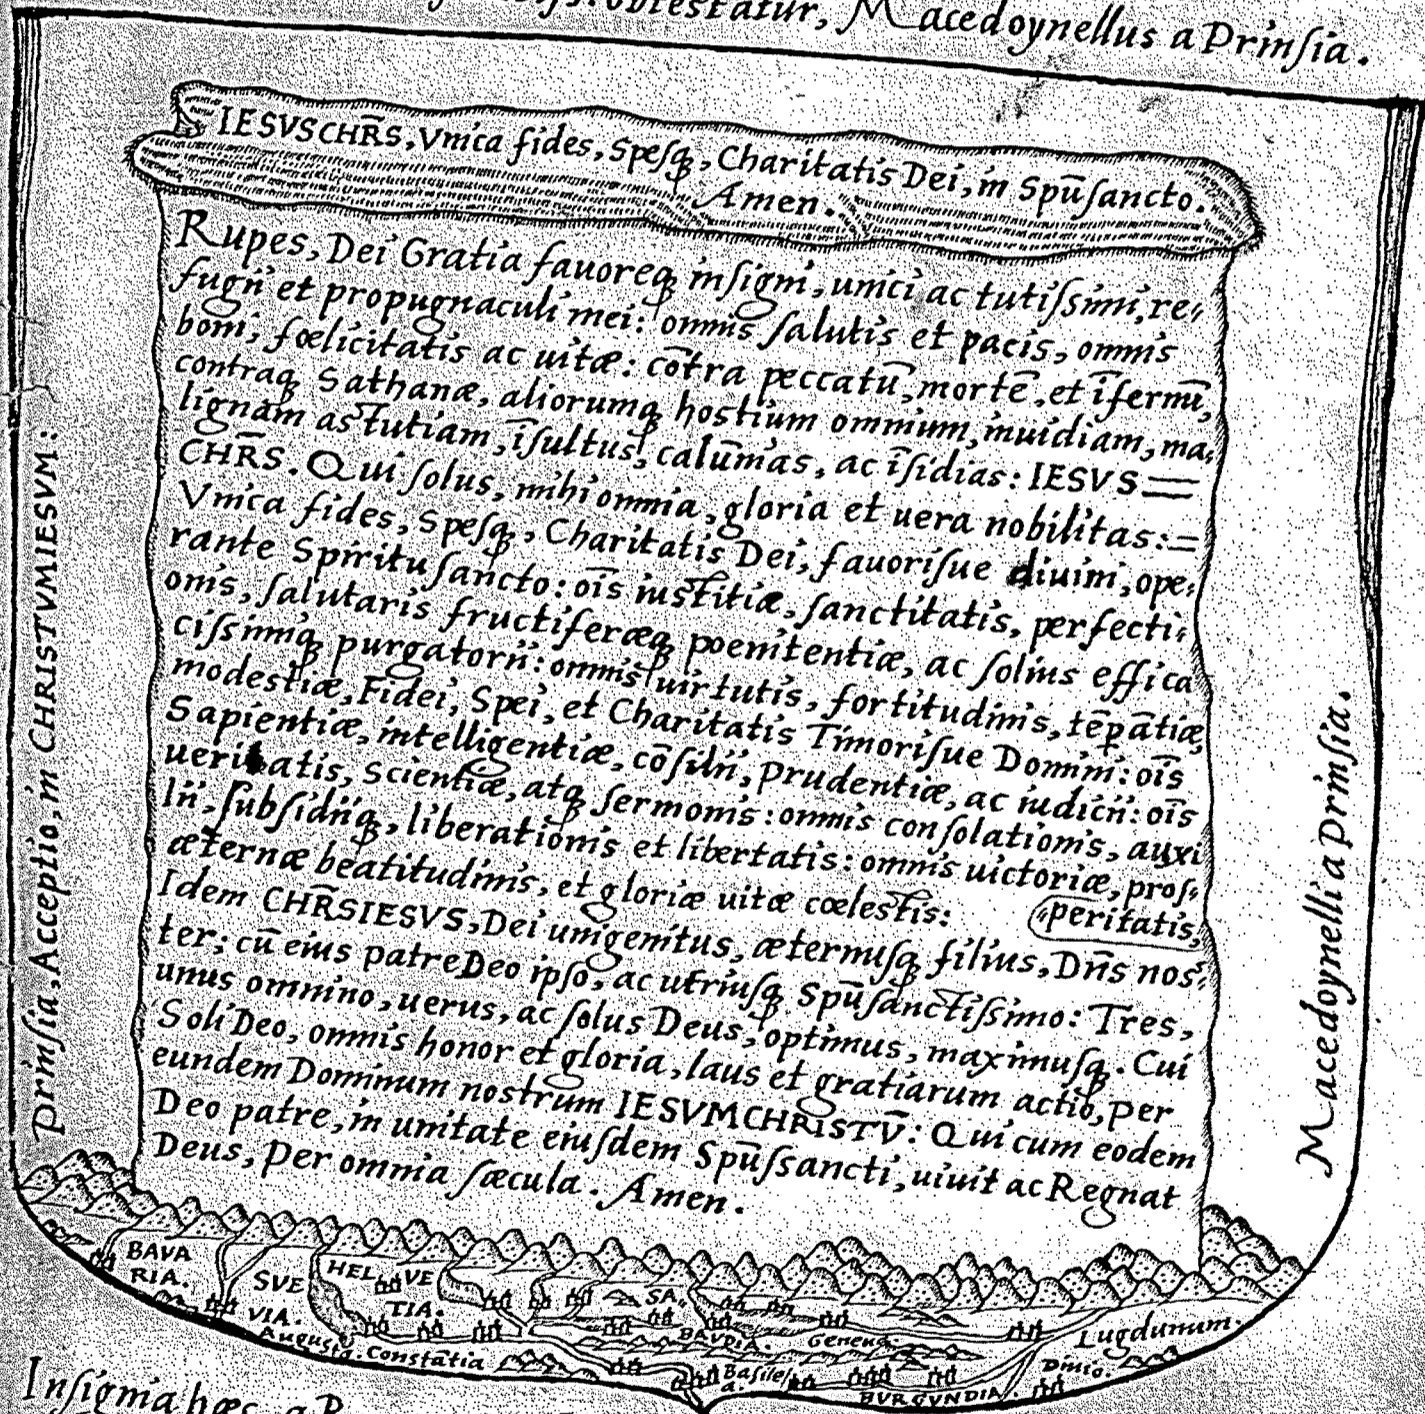 obtestatur, Macedoynellus a Prinſia.
IESVSCHR̄S, Vnica fides, Speſq, Charitatis Dei, in Spūſancto.
Amen.
Rupes, Dei Gratia fauoreq inſigni, unici ac tutiſſimi, re,,
fugii et propugnaculi mei: omnis ſalutis et pacis, omnis
boni, fœlicitatis ac uitæ: cōtra peccatū, mortē, et īfernū,
contraq Sathanæ, aliorumq hostium omnium, inuidiam, ma,,
lignam astutiam, īſultus, calūnias, ac īſidias: IESVS=
CHR̄S. Qui ſolus, mihi omnia, gloria et uera nobilitas:=
Vnica fides, Speſq, Charitatis Dei, fauoriſue diuini, ope,,
rante Spiritu ſancto: oīs iustitiæ, ſanctitatis, perfecti,,
onis, ſalutaris fructiferæq poenitentiæ, ac ſolius effica
ciſſimiq purgatorii: omnis uirtutis, fortitudinis, tēpātiæ,
modestiæ, Fidei, Spei, et Charitatis Timoriſue Domini: oīs
Sapientiæ, intelligentiæ, cōſilii, prudentiæ, ac iudicii: oīs
ueritatis, scientiæ, atq ſermonis: omnis conſolationis, auxi
lii, ſubſidiiq, liberationis et libertatis: omnis uictoriæ, proſ,,
æternæ beatitudinis, et gloriæ uitæ cœlestis: ,,peritatis,
Idem CHR̄SIESVS, Dei unigenitus, æternuſq filius, Dn̄s noſ,,
ter; cū eius patre Deo ipſo, ac utriuſq Spūſanctiſſimo: Tres,
unus omnino, uerus, ac ſolus Deus, optimus, maximuſq. Cui
Soli Deo, omnis honor et gloria, laus et gratiarum actio, per
eundem Dominum nostrum IESVMCHRISTV̄: Qui cum eodem
Deo patre, in unitate eiuſdem Spūſsancti, uiuit ac Regnat
Deus, per omnia ſæcula. Amen.
prinſia, Acceptio, in CHRISTVMIESVM:
Macedoynelli a prinſia.
BAVA
RIA.
SVE
VIA.
HEL VE
TIA.
SA,,
BAVDIA.
Augusta. Constātia
Geneua.
Lugdunum.
Basile,,
a.
Diuio.
BVRGVNDIA.
Inſignia hæc, a